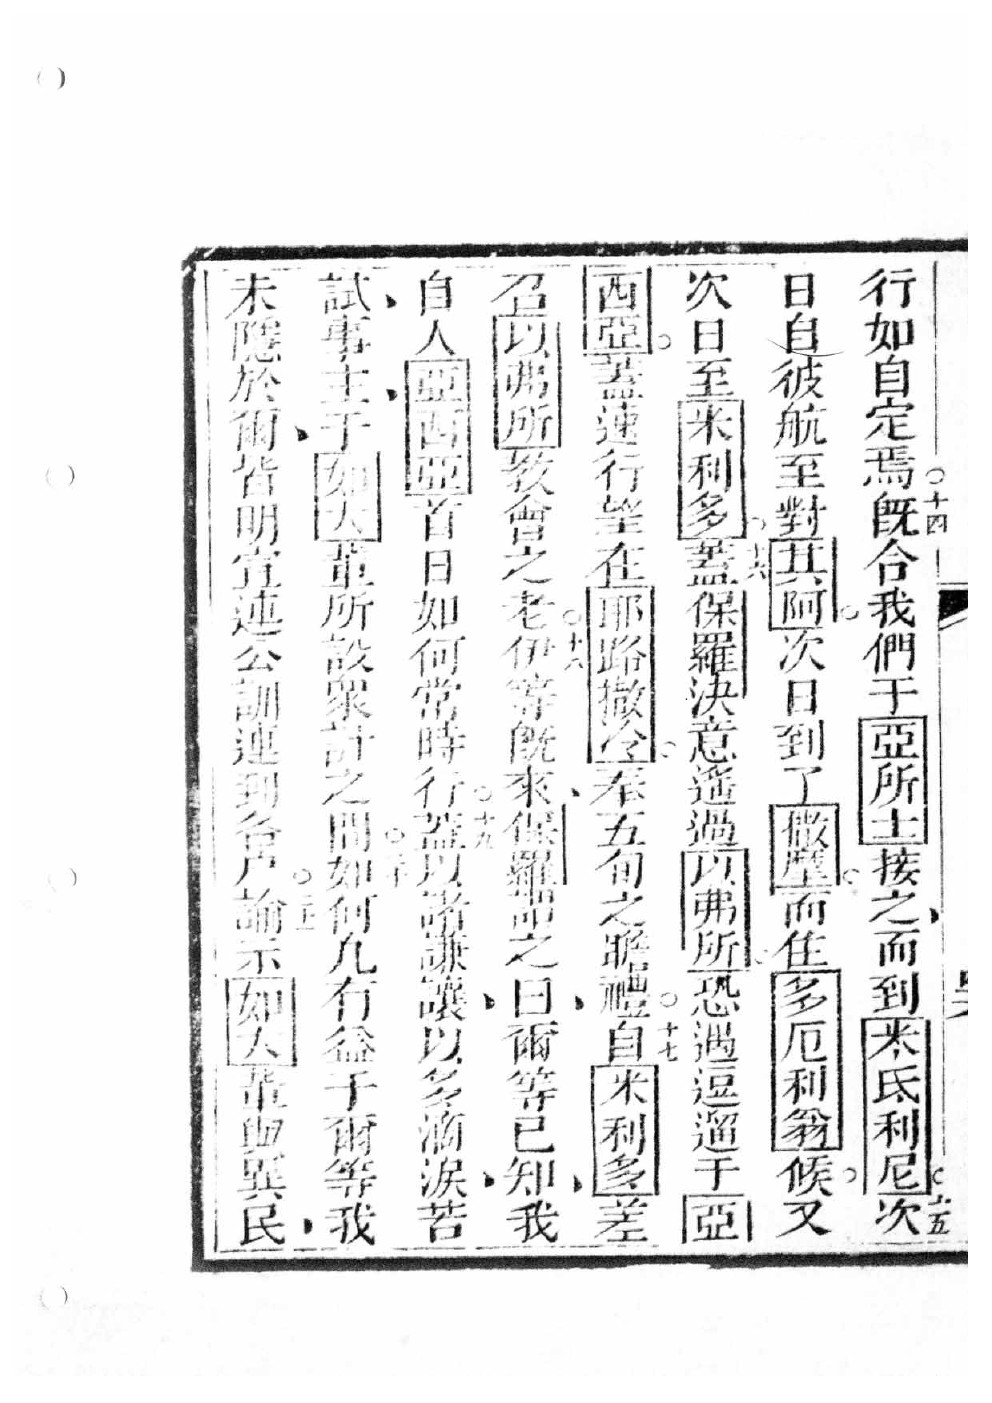 行如自定焉○十四既合我們于亞所士接之而到米氐利尼○十五次
日自彼航至對其阿○次日到了撒摩○而住多厄利翁候○又
次日至米利多○十六蓋保羅決意遙過以弗所○恐遇逗遛于亞
西亞○蓋速行望在耶路撒冷○奉五旬之瞻禮○十七自米利多差
召以弗所教會之老○十八伊等既來、保羅謂之曰、爾等已知、我
自人亞西亞首日如何常時行○十九蓋以諸謙讓、以多滴淚、苦
試、事主、于如大輩所設眾計之間○二十如何凡有益于爾等、我
未隱於爾、皆明宣連公訓連到各戶○二十一諭示如大輩與異民